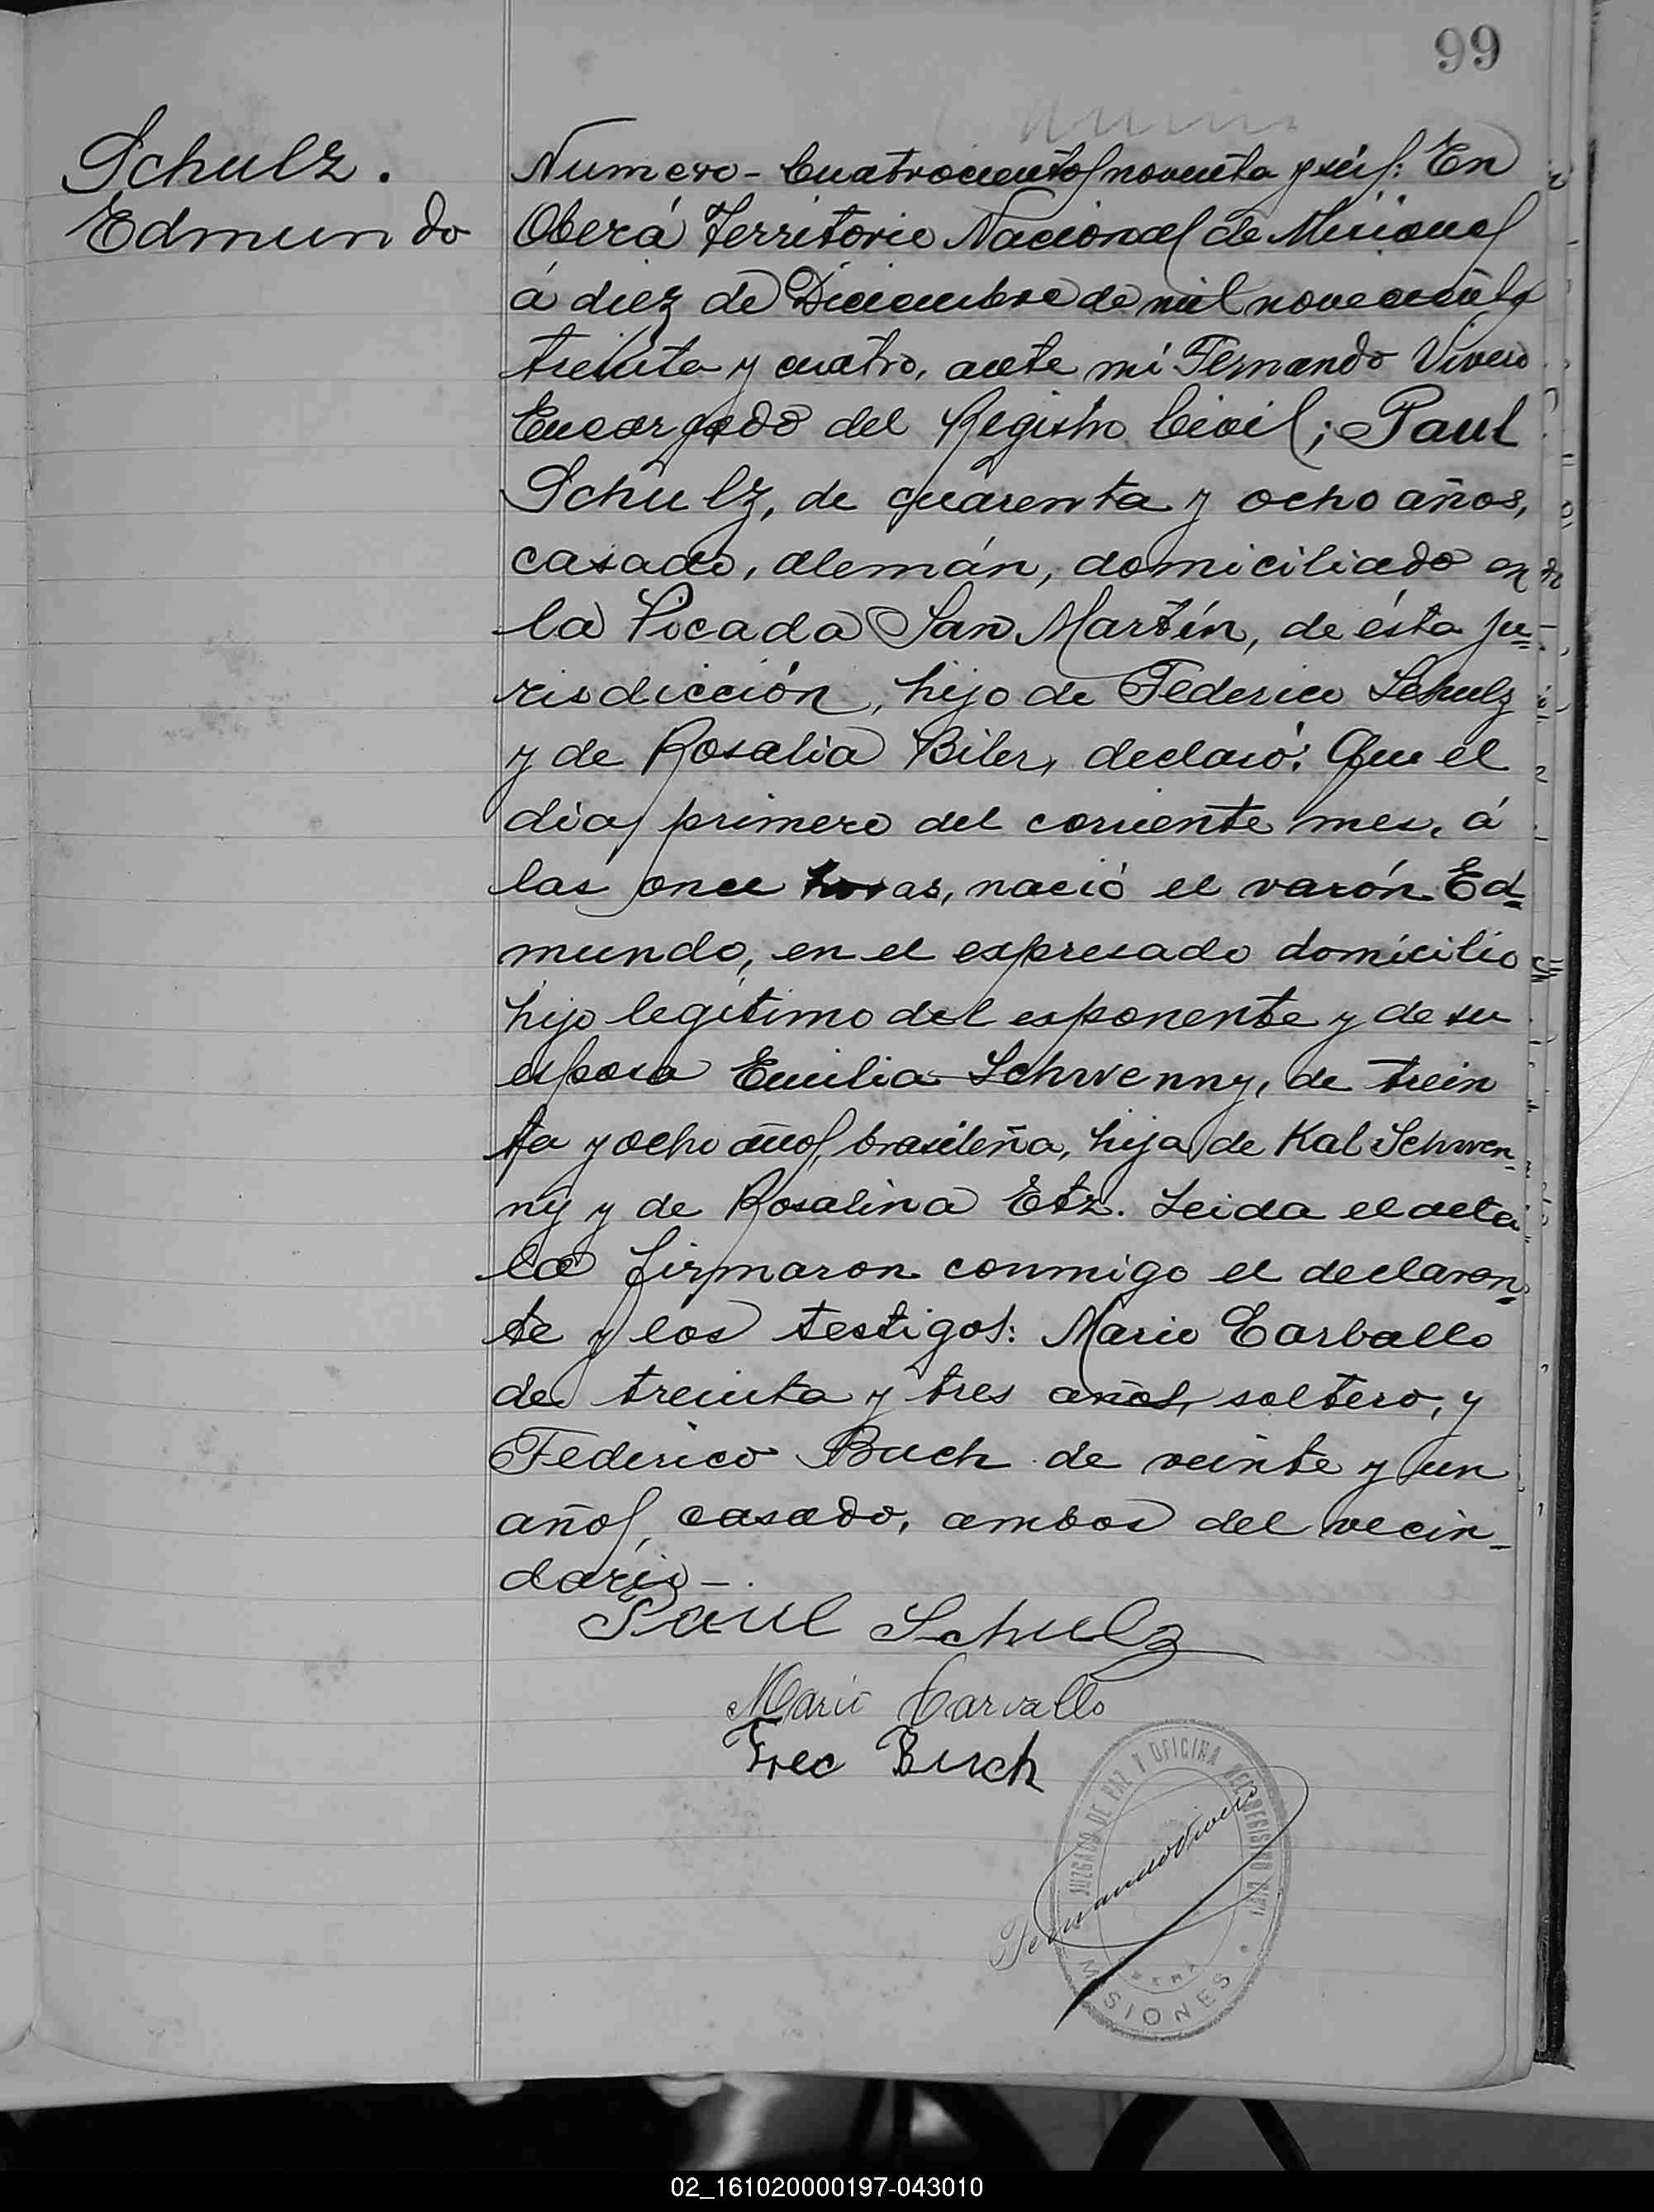 99
Schulz.
Edmundo
Numero - Cuatrocientos noventa y seis: En
Oberá Territorio Nacional de Misiones
á diez de Diciembre de mil novecientos
treinta y cuatro, ante mi Fernando Vivero
Encargado del Registro Civil; Paul
Schulz, de quarenta y ocho años,
casado, alemán, domiciliado en
la Picada San Martín, de ésta ju=
risdicción, hijo de Federico Schulz
y de Rosalia Biler, declaró: Que el
dia primero del corriente mes, á
las once horas, nació el varón Ed=
mundo, en el expresado domicilio
hijo legítimo del esponente y de su
esposa Emilia Schwenny, de trein
ta y ocho años, brasileña, hija de Kal Schwen=
ny y de Rosalina Etz. Leida el acta
la firmaron conmigo el declaran=
te y los testigos: Mario Carballo
de treinta y tres años, soltero, y
Federico Buch de veinte y un
años, casado, ambos del vecin-
dario-.
Paul Schulz
Mario Carvallo
Frec Buch
JUZGADO DE PAZ Y OFICINA DEL REGISTRO CIVIL
Fernando Vivero
MISIONES
02_161020000197-043010